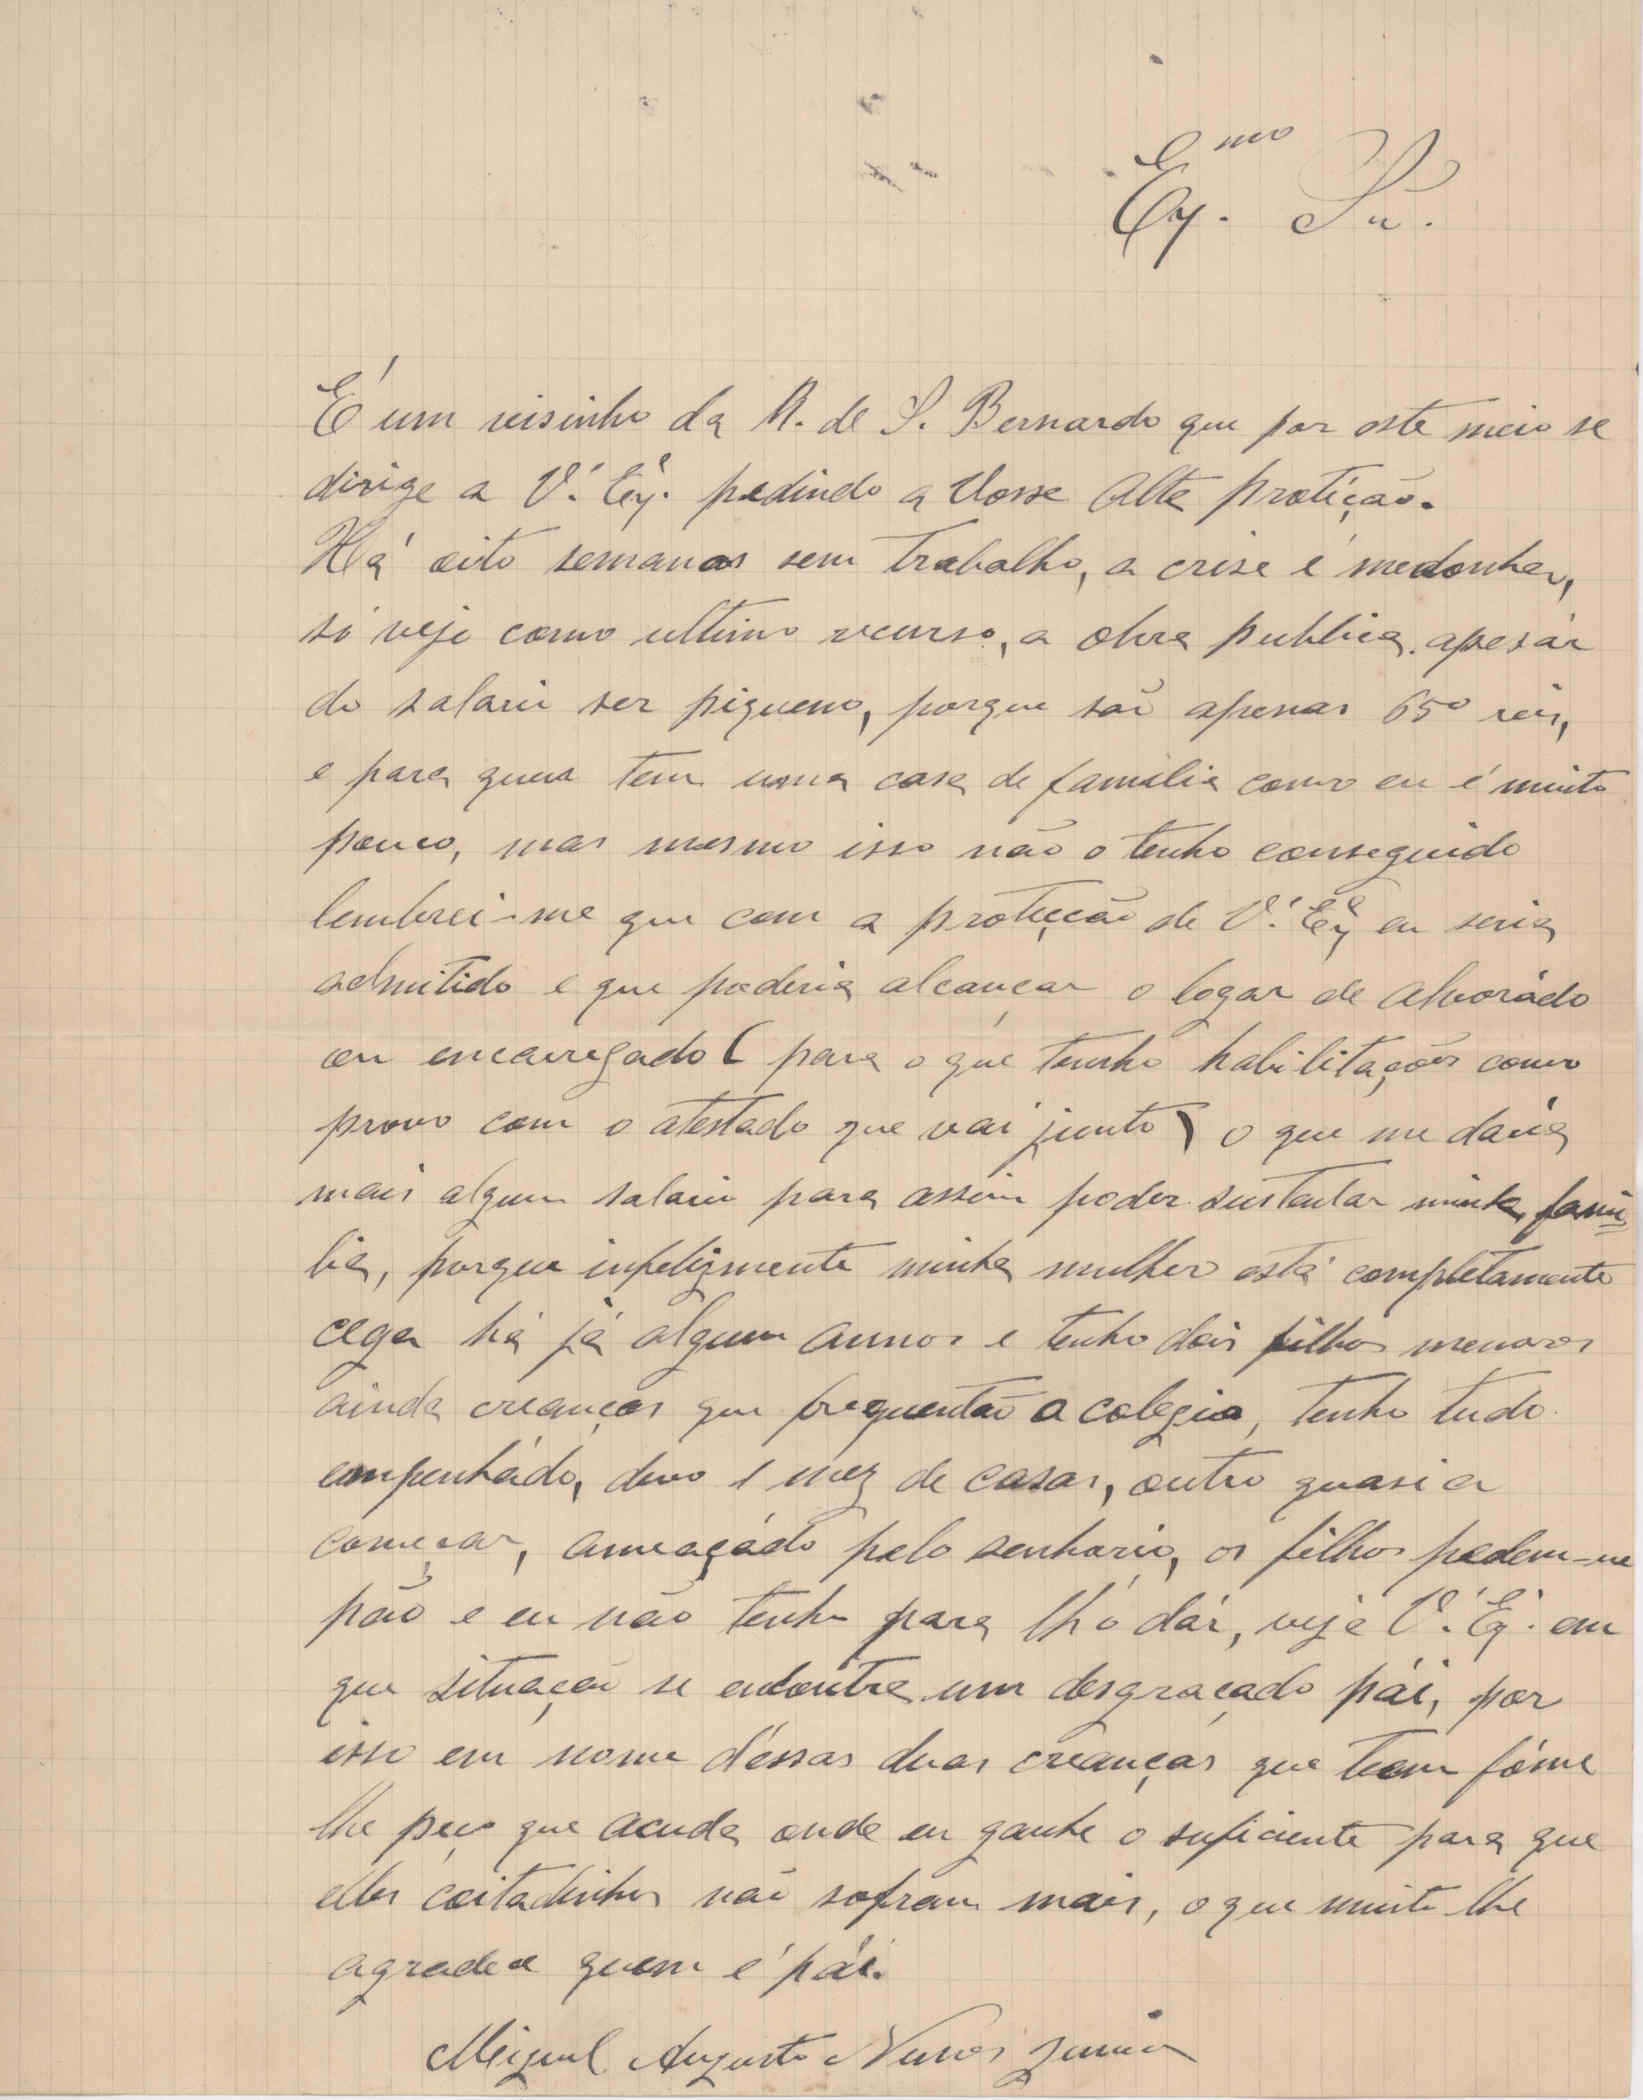 Exmo Sr.
É um visinho da R. de S. Bernardo que por este meio se
dirige a V.ª Exª. pedindo a Vosse Alta protição.
Há oito semanas sem trabalho, a crise é medonha,
só vejo como ultimo recurso, a obra publica, apesár
do salario ser piqueno, porque são apenas 650 reis,
e para quem tem uma casa de familia como eu é muito
pouco, mas mesmo isso não o tenho conseguido
lembrei-me que com a protecção de V.ª Exª eu seria
admitido e que poderia alcançar o logar de alvorádo
ou encarregado ( para o que tenho habilitações como
provo com o atestado que vai junto ) o que me daria
mais algum salario para assim poder sustentar minha fami=
lia, porque infelizmente minha mulher está completamente
cega há já alguns annos e tenho dois filhos menores
ainda creanças que frequentão o colegio, tenho tudo
empenhádo, devo 1 mez de casas, outro quasi a
começar, ameaçádo pelo senhorio, os filhos pedem-me
pão e eu não tenho para lh'o dár, veja V.ª Exª. em
que situação se encontra um desgraçado pái, por
isso em nome d'essas duas creanças que teem fóme
lhe peço que acuda onde eu ganhe o suficiente para que
elles coitadinhos não sofram mais, o que muito lhe
agradece quem é pái.
Miguel Augusto Nunes Junior